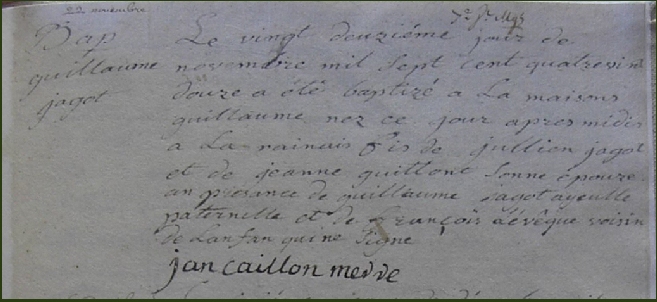 22 novembre
Bap
guillaume
jagot
Le vingt deuziéme jour de
novembre mil sept cent quatrevint
douze a été baptizé a La maisons
guillaume nez ce jour apres midis
a La rainais fis de jullien jagot
et de jeanne guillont sonne épouze
an presance de guillaume jagot ayeulle
paternelle et de François Lévêque voisin
de Lanfan qui ne signe
jan caillon merre